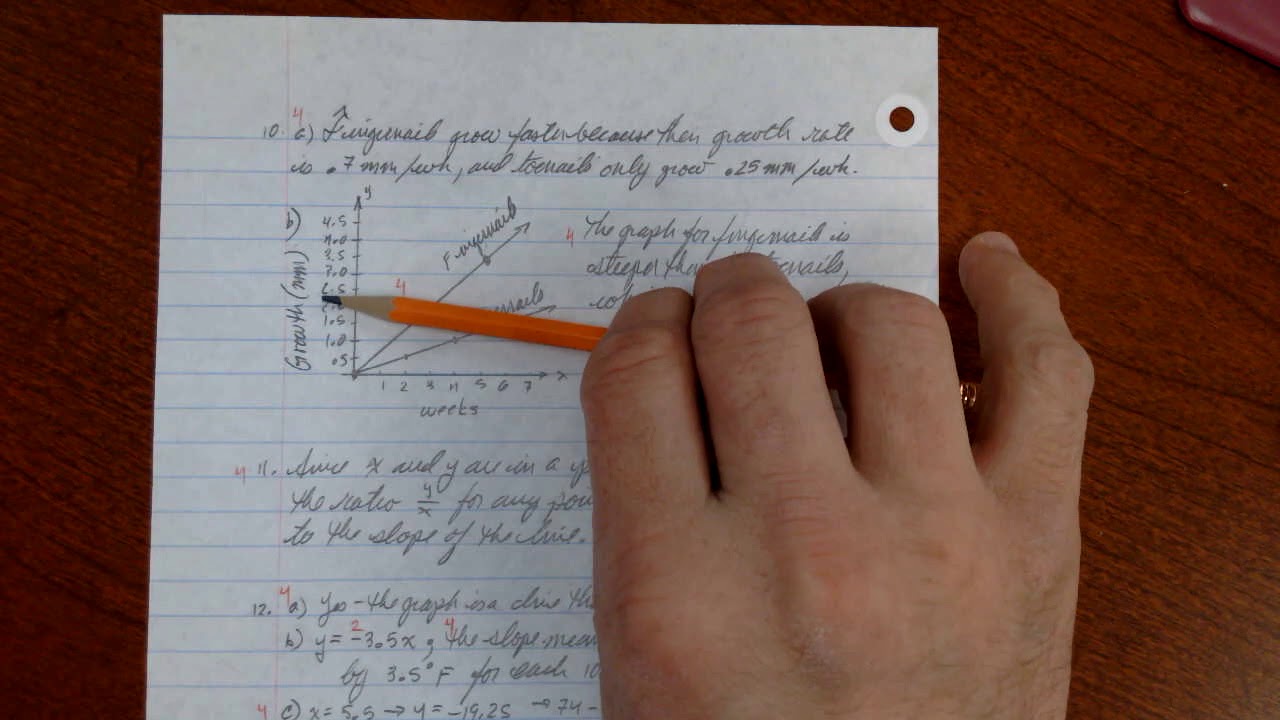 4
10. a) Fingernails grow faster because their growth rate
is .7 mm/wk, and toenails only grow .25 mm/wk.
b)
y
4.5
4.0
3.5
3.0
2.5
1.5
1.0
.5
Growth (mm)
Fingernails
4
1 2 3 4 5 6 7 x
weeks
4 The graph for fingernails is
steeper
4 11. Since x and y are in a
the ratio y/x for any
to the slope of the line.
4
12. a) Yes - the graph is a line
2 4
b) y = -3.5x; the slope
by 3.5°F for each 10
4 c) x = 5.5 → y = -19.25 → 74 -